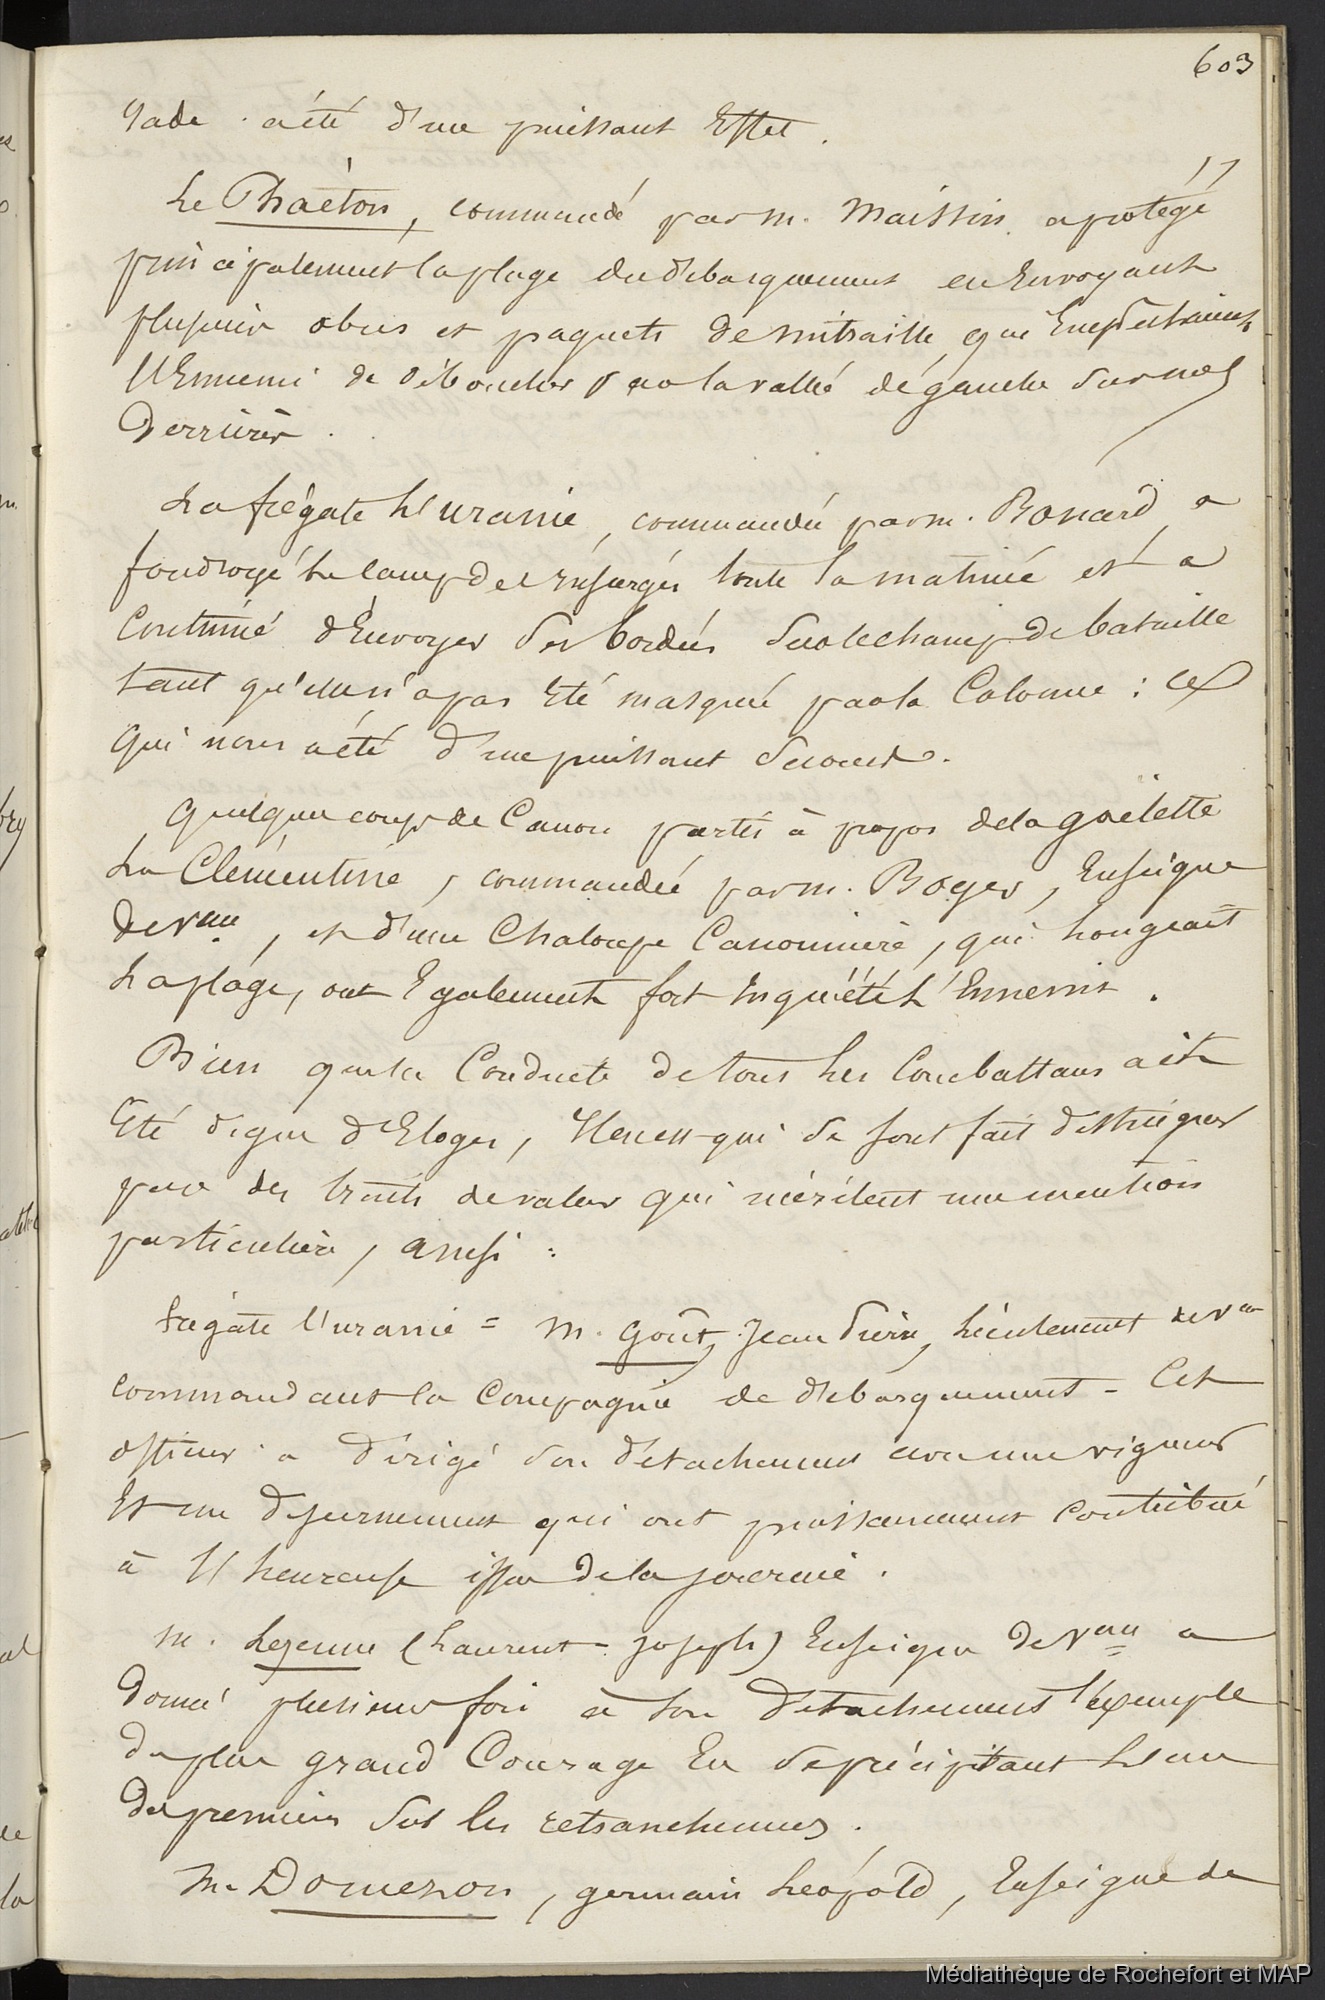 603
rade a été d'un puissant Effet.
Le Phaéton, commandé par m. Maissin a protégé
principalement la plage du débarquement en Envoyant
plusieurs obus et paquets de mitraille, qui Empêchaient
l'Ennemi de déboucher par la vallée de gauche sur nos
Derrières.
La frégate l'uranie, commandée par m. Bonard, a
foudroyé le camp des insurgés toute la matinée et a
Continué d'Envoyer des bordées sur le champ de bataille
tant qu'elle n'a pas Eté masquée par la Colonne : ce
qui nous a été d'un puissant secours.
Quelques coups de Canon partis à propos de la goëlette
La Clémentine, commandée par m. Boyer, Enseigne
de Veau, et d'une Chaloupe Canonnière, qui longeait
La plage, ont Egalement fort inquiété L'Ennemi.
Bien que la Conduite de tous les Combattans ait
Eté digne d'Eloges, Il en est qui se sont fait distinguer
par des traits de valeur qui méritent une mention
particulière, ainsi :
frégate l'uranie = m. Goût, Jean Pierre, Lieutenant de Veau
commandant la Compagnie de débarquement - Cet
officier a dirigé son détachement avec une vigueur
Et un discernement qui ont puissamment contribué
à l'heureuse issue de la journée.
m. Lejeune (Laurent-Joseph) Enseigne de Veau a
donné plusieurs fois à son détachement l'exemple
du plus grand Courage En se précipitant L'un
des premiers sur les retranchemens.
m. Domezon, germain Léopold, Enseigne de
Médiathèque de Rochefort et MAP